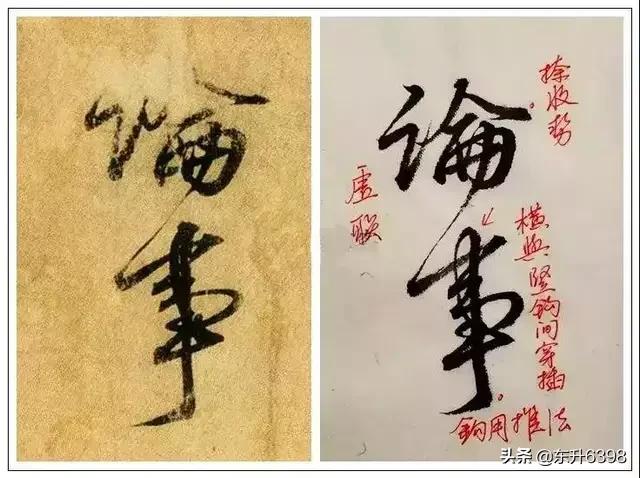 論事
論事
捺收势
虚联
横与竖钩间穿插
钩用推法
头条 @东升6398